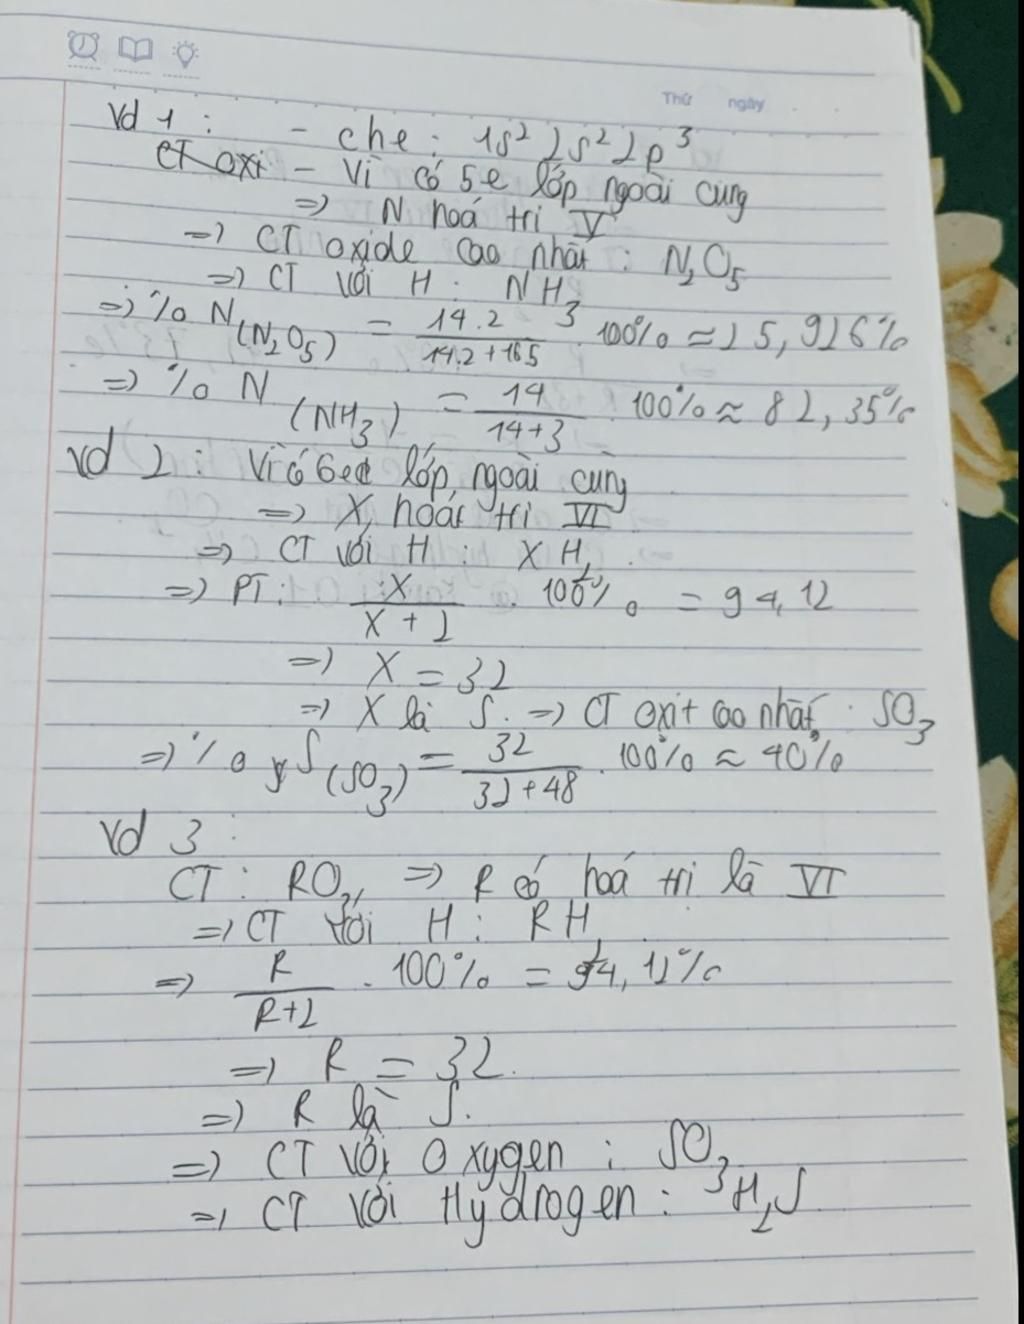 Thứ ngày
Vd 1 : - che : 1s² 2s² 2p³
CT oxi - Vì có 5e lớp ngoài cùng
=> N hoá trị V
=> CT oxide cao nhất : N₂O₅
=> CT với H : NH₃
=> % N (N₂O₅) = 14.2 / 14.2+16.5 . 100% ≈ 25,926%
=> % N (NH₃) = 14 / 14+3 . 100% ≈ 82,35%
Vd 2 : Vì có 6e lớp ngoài cùng
=> X hoá trị VI
=> CT với H : XH₂
=> PT : X / X + 2 . 100% = 94,12
=> X = 32
=> X là S. => CT oxit cao nhất : SO₃
=> % S (SO₃) = 32 / 32+48 . 100% ≈ 40%
Vd 3 :
CT : RO₃ => R có hoá trị là VI
=> CT với H : RH₂
=> R / R+2 . 100% = 94,12%
=> R = 32.
=> R là S.
=> CT với Oxygen : SO₃
=> CT với Hydrogen : H₂S